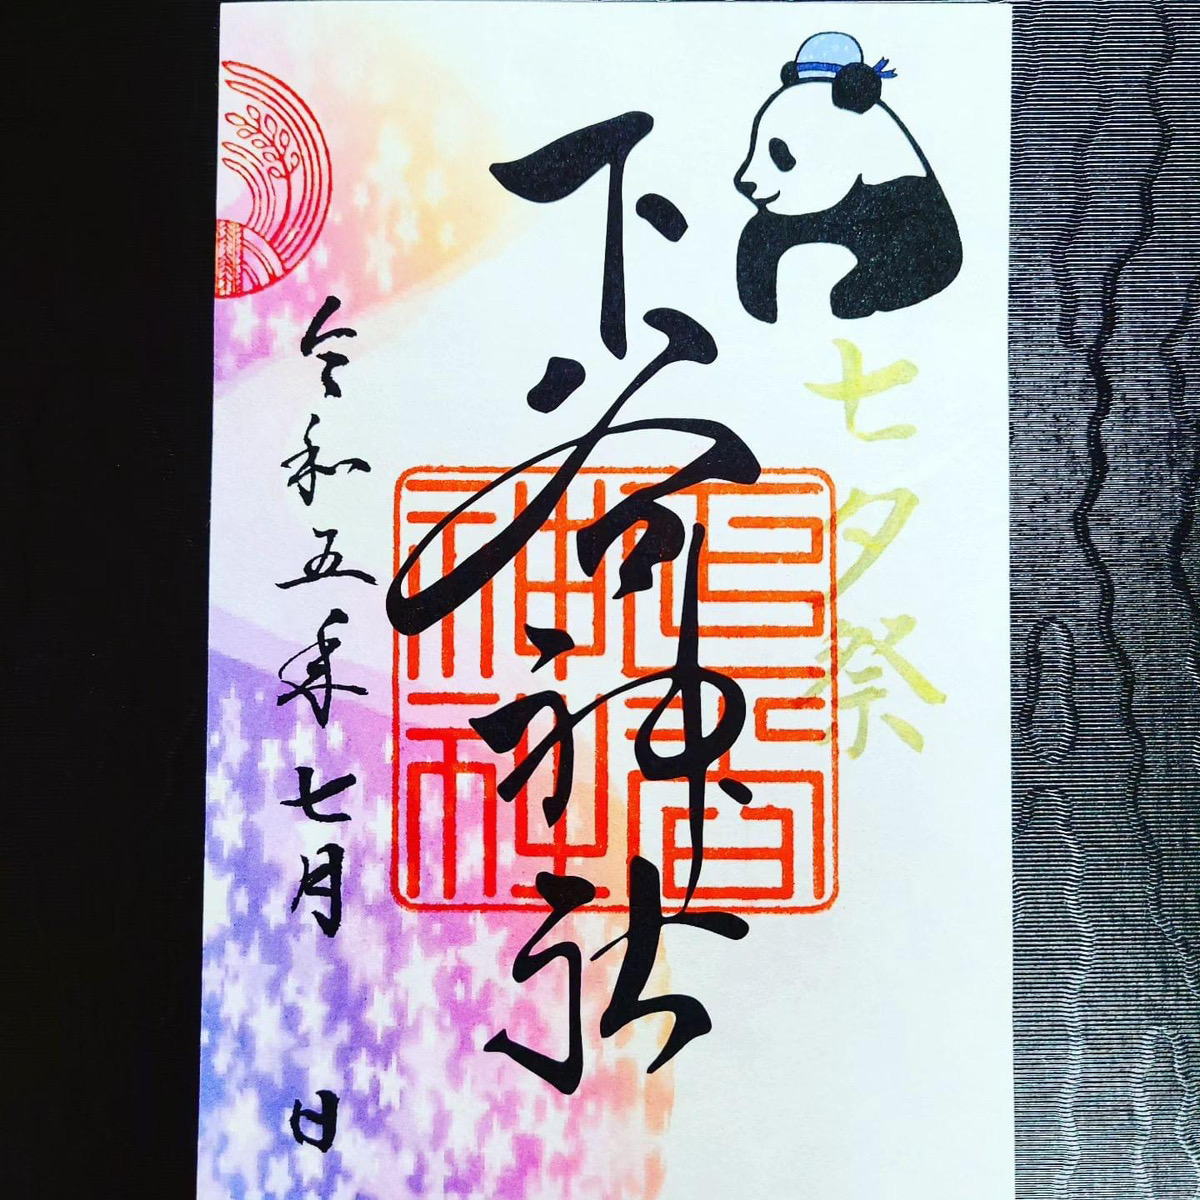 七夕祭
下谷神社
令和五年七月 日
下谷神社